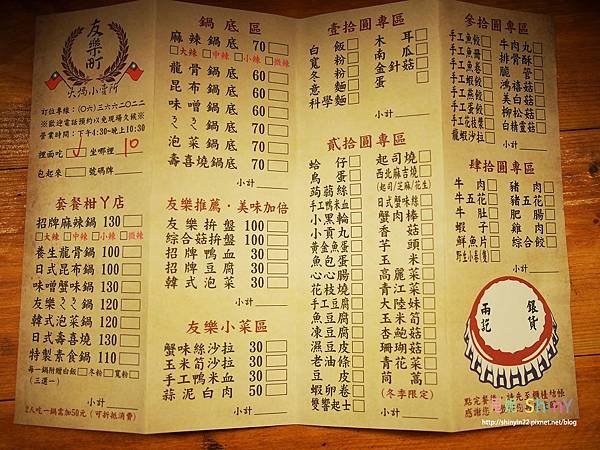 友樂町
火鍋小賣所
訂位專線：(06)3366 2022
※歡迎電話預約以免現場久候※
營業時間：下午4:30~晚上10:30
裡面吃 坐哪裡 10
包起來 號碼牌
套餐柑丫店
招牌麻辣鍋 130
大辣 中辣 小辣 微辣
養生龍骨鍋 100
日式昆布鍋 100
味噌蟹味鍋 130
友樂ㄛㄛ鍋 120
韓式泡菜鍋 120
日式壽喜燒 130
特製素食鍋 110
每一鍋附贈白飯 冬粉 寬粉
(三選一)
小計
2人吃一鍋需加50元(可折抵消費)
鍋底區
麻辣鍋底 70
大辣 中辣 小辣 微辣
龍骨鍋底 60
昆布鍋底 60
味噌鍋底 60
ㄛㄛ鍋底 70
泡菜鍋底 70
壽喜燒鍋底 70
小計
友樂推薦·美味加倍
友樂拚盤 100
綜合菇拚盤 100
招牌鴨血 30
招牌豆腐 30
韓式泡菜 30
小計
友樂小菜區
蟹味絲沙拉 30
玉米筍沙拉 30
手工鴨米血 30
蒜泥白肉 50
小計
壹拾圓專區
白飯
寬粉
冬粉
意麵
科學麵
木耳
南瓜
金針菇
蛋
小計
貳拾圓專區
蛤仔
鳥蛋
蒟蒻絲
手工鴨米血
小黑輪
小貢丸
黃金魚蛋
魚包蛋
心心腸
花枝燒
手工豆腐
魚豆腐
凍豆腐
濕豆皮
老油條
豆皮
蝦卵卷
雙響起士
起司燒
西北麻吉燒
(起司/芝麻/花生)
日式蟹味絲
蟹肉棒
香菇
芋頭
玉米
高麗菜
青江菜
大陸妹
玉米筍
杏鮑菇
珊瑚菇
青花菜
茼萵
(冬季限定)
小計
參拾圓專區
手工魚餃
手工蝦卷
手工蝦餃
手工蛋餃
手工燕餃
手工花枝漿
龍蝦沙拉
牛肉丸
排骨酥
脆脆管
鴻禧菇
美白菇
柳松菇
白精靈菇
小計
肆拾圓專區
牛肉
牛五花
牛肚
蝦子
鮮魚片
野生小卷(隻)
豬肉
豬五花
肥腸
雞肉
綜合餃
小計
兩記
銀貨
點完餐後，請先至櫃檯結帳
shinyin
http://shinyin22.pixnet.net/blog